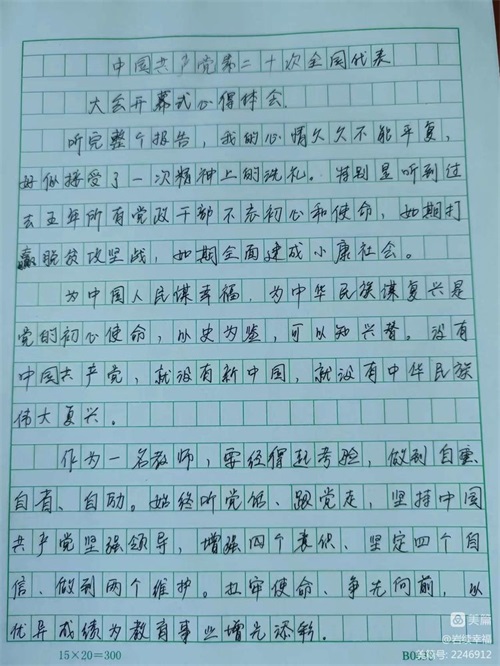 中国共产党第二十次全国代表
大会开幕式心得体会
听完整个报告，我的心情久久不能平复，
好似接受了一次精神上的洗礼。特别是听到过
去五年所有党政干部不忘初心和使命，如期打
赢脱贫攻坚战，如期全面建成小康社会。
为中国人民谋幸福，为中华民族谋复兴是
党的初心使命，以史为鉴，可以知兴替。没有
中国共产党，就没有新中国，就没有中华民族
伟大复兴。
作为一名教师，要经得起考验，做到自重
自省、自励。始终听党话、跟党走，坚持中国
共产党坚强领导，增强四个意识、坚定四个自
信、做到两个维护。扛牢使命、争先向前，以
优异成绩为教育事业增光添彩。
15×20=300
美篇
@岩城幸福
美篇号：2246912